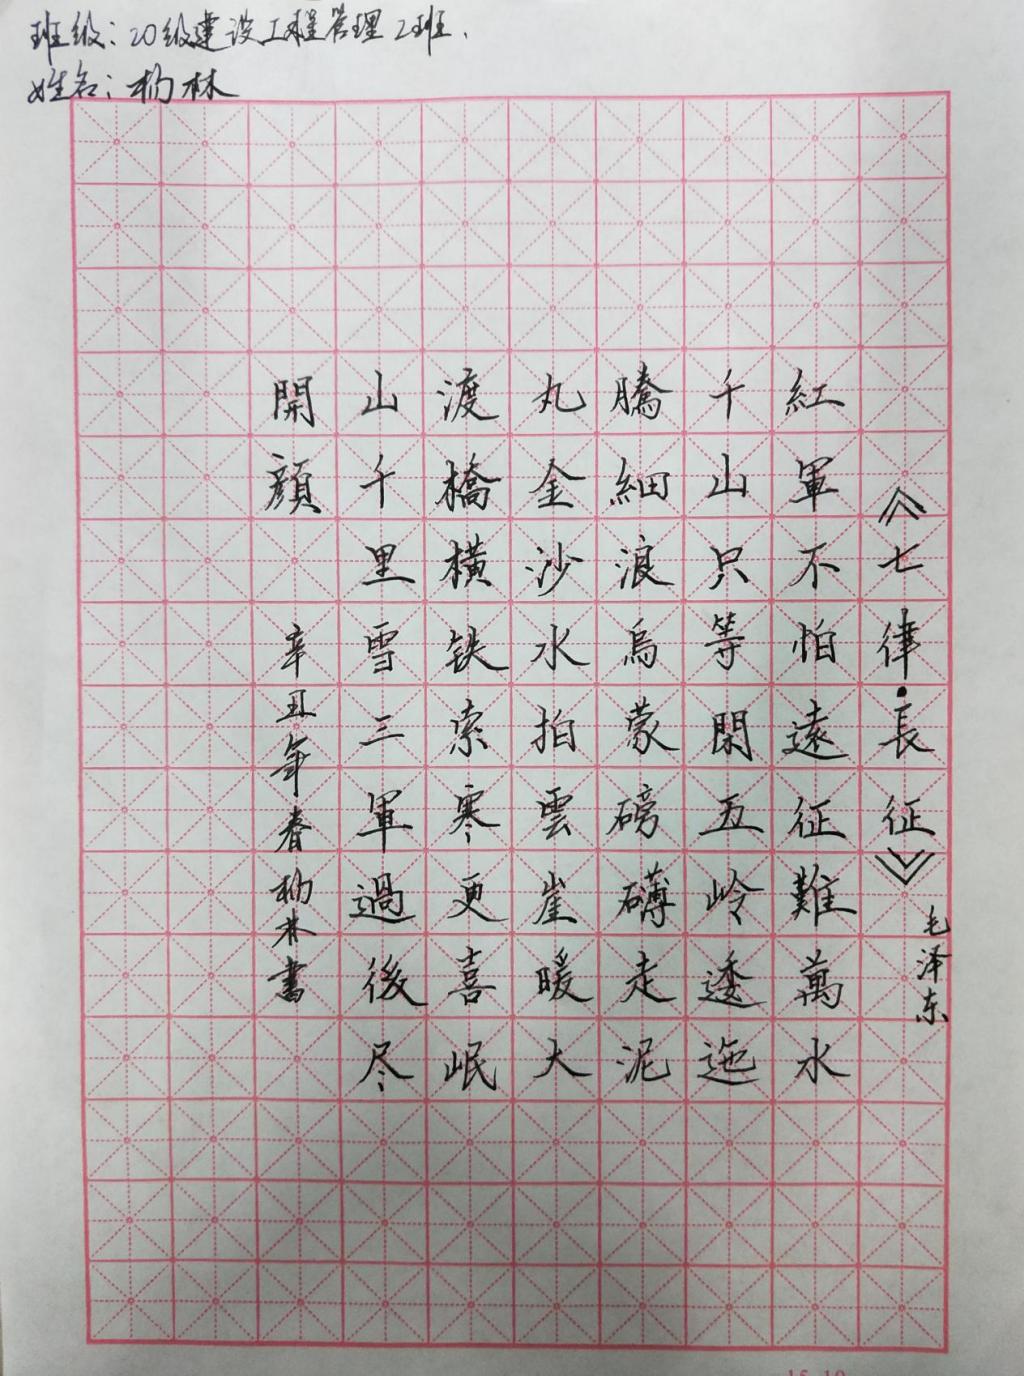 班级：20级建设工程管理2班.
姓名：杨林
《七律·長征》
毛泽东
紅軍不怕遠征難萬水
千山只等閑五岭逶迤
騰細浪烏蒙磅礴走泥
丸金沙水拍雲崖暖大
渡橋橫铁索寒更喜岷
山千里雪三軍過後尽
開顔
辛丑年春杨林書